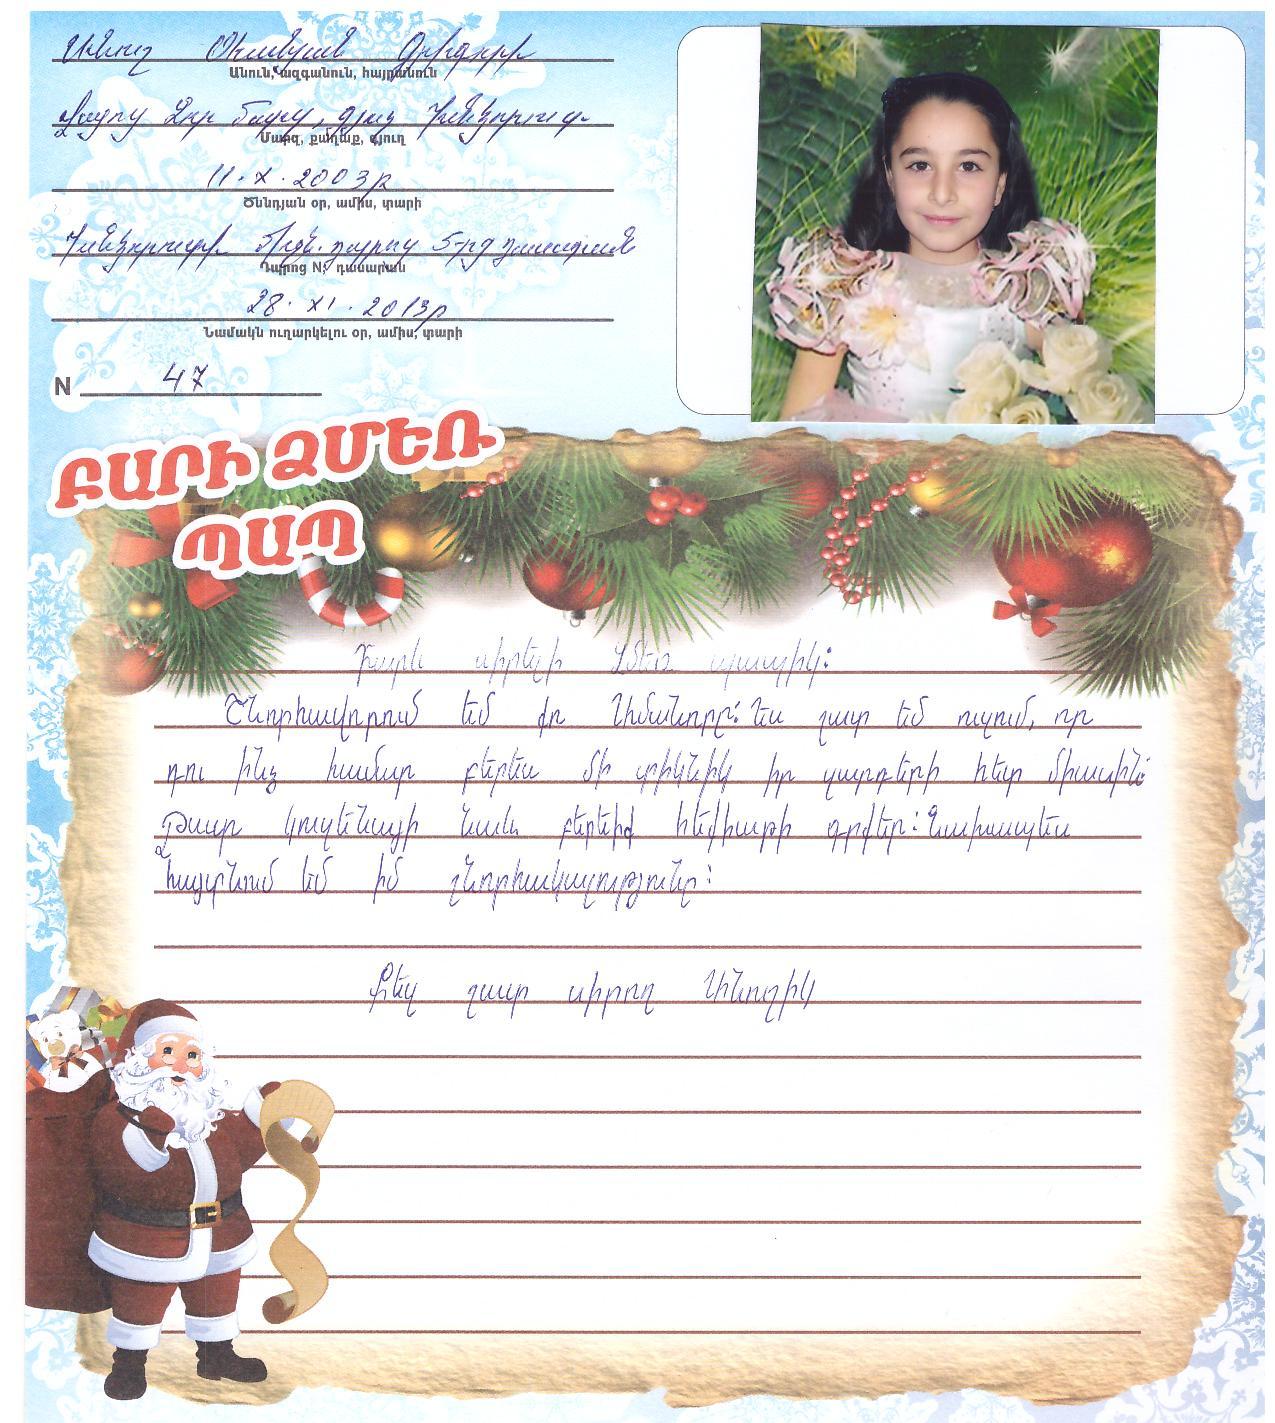 Անուշ Օհանյան Գրիգորի
Անուն, ազգանուն, հայրանուն
Վայոց Ձոր մարզ, գյուղ
Մարզ, քաղաք, գյուղ
11.X.2003թ
Ծննդյան օր, ամիս, տարի
միջն. դպրոց 5-րդ դասարան
Դպրոց N, դասարան
28.XI.2013թ
Նամակն ուղարկելու օր, ամիս, տարի
N 47
ԲԱՐԻ ՁՄԵՌ
ՊԱՊ
Բարև սիրելի Ձմեռ պապիկ:
Շնորհավորում եմ քո Ամանորը: Ես շատ եմ ուզում, որ
դու ինձ համար բերես մի տիկնիկ իր զարդերի հետ միասին:
Շատ կուզենայի նաև բերեիք հեքիաթի գրքեր: Նախապես
հայտնում եմ իմ շնորհակալությունը:
Քեզ շատ սիրող Անուշիկ